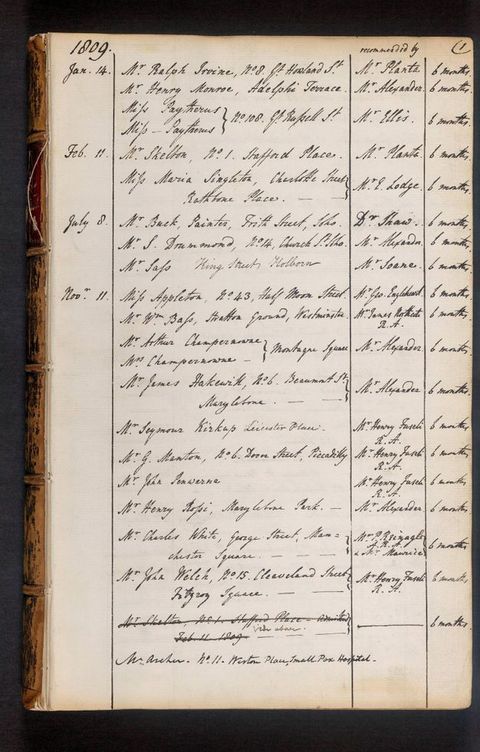 1809. recommended by (1)
Jan. 14. Mr Ralph Irvine, No 8. Gt Howland St. Mr Planta 6 months.
Mr Henry Monroe, Adelphi Terrace. Mr Alexander. 6 months.
Miss Paytherus
Miss — Paytherus } No 108. Gt Russell St Mr Ellis. 6 months.
Feb. 11. Mr Skelton, No 1. Stafford Place. Mr Planta 6 months.
Miss Maria Singleton, Charlotte Street
Rathbone Place. — — } Mr E. Lodge. 6 months.
July 8. Mr Buck, Painter, Frith Street, Soho. Dr Shaw. 6 months.
Mr S. Drummond, No 14, Church St Soho. Mr Alexander. 6 months.
Mr Sass King Street Holborn Mr Soane. 6 months.
Novr 11. Miss Appleton, No 43, Half Moon Street. Mr Geo. Engleheart 6 months.
Mr Wm Bass, Stratton Ground, Westminster. Mr James Northcote 6 months.
R.A.
Mr Arthur Champernowne
Mrs Champernowne — } Montague Square Mr Alexander 6 months.
Mr James Hakewill, No 6. Beaumont St
Marylebone. — — Mr Alexander 6 months.
Mr Seymour Kirkup Leicester Place. Mr Henry Fuseli 6 months
R.A.
Mr G. Manton, No 6. Dover Street, Piccadilly Mr Henry Fuseli 6 months
R.A.
Mr John Penwarne Mr Henry Fuseli 6 months
R.A.
Mr Henry Rossi, Marylebone Park. — Mr Alexander 6 months.
Mr Charles White, George Street, Man=
chester Square. — — } Mr P. Reinagle
A.R.A.
& Mr Maurice 6 months.
Mr John Welch, No 15. Cleaveland Street
Fitzroy Square. — — Mr Henry Fuseli 6 months.
R.A.
Mr Skelton, No 1. Stafford Place — admitted
Feb 11 1809 — vide above — 6 months.
Mr Archer. No 11. Weston Place, Small Pox Hospital.